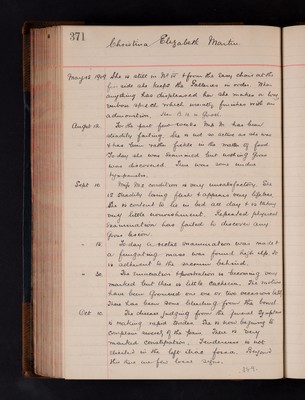 371
Christina Elizabeth Martin
May 26 1909 She is still in No 10 & from the easy chair at the
fire side she keeps the Patients in order. When
anything has displeased her she makes a long
speech which usually finishes with an
admonition. Her B.H. is Good.
Augst 18. For the past few weeks Mrs M. has been
steadily failing. She is not so active as she was
& has been rather fickle in the matter of food.
To day she was examined but nothing gross
was discovered. There were some
symptoms.
Sept 10. Mrs Ms condition is very unsatisfactory. She
is steadily losing flesh & appears very
She is content to lie in bed all day & is taking
very little nourishment. Repeated physical
examination has failed to discover any
gross lesion.
" 15. To day a rectal examination was made &
a fungating mass was found high up. It
is adherent to the sacrum behind.
" 20. The emaciation & prostration is becoming very
marked but there is little cachexia. The motions
have been on one or two occasions lately.
There has been some bleeding from the bowel.
Oct 10. The disease judging from the general symptoms
is making rapid strides. She is now beginning to
complain of the pain. There is very
marked constipation. Tenderness is not
elicited in the left iliac fossa. Beyond
this there are few local signs.